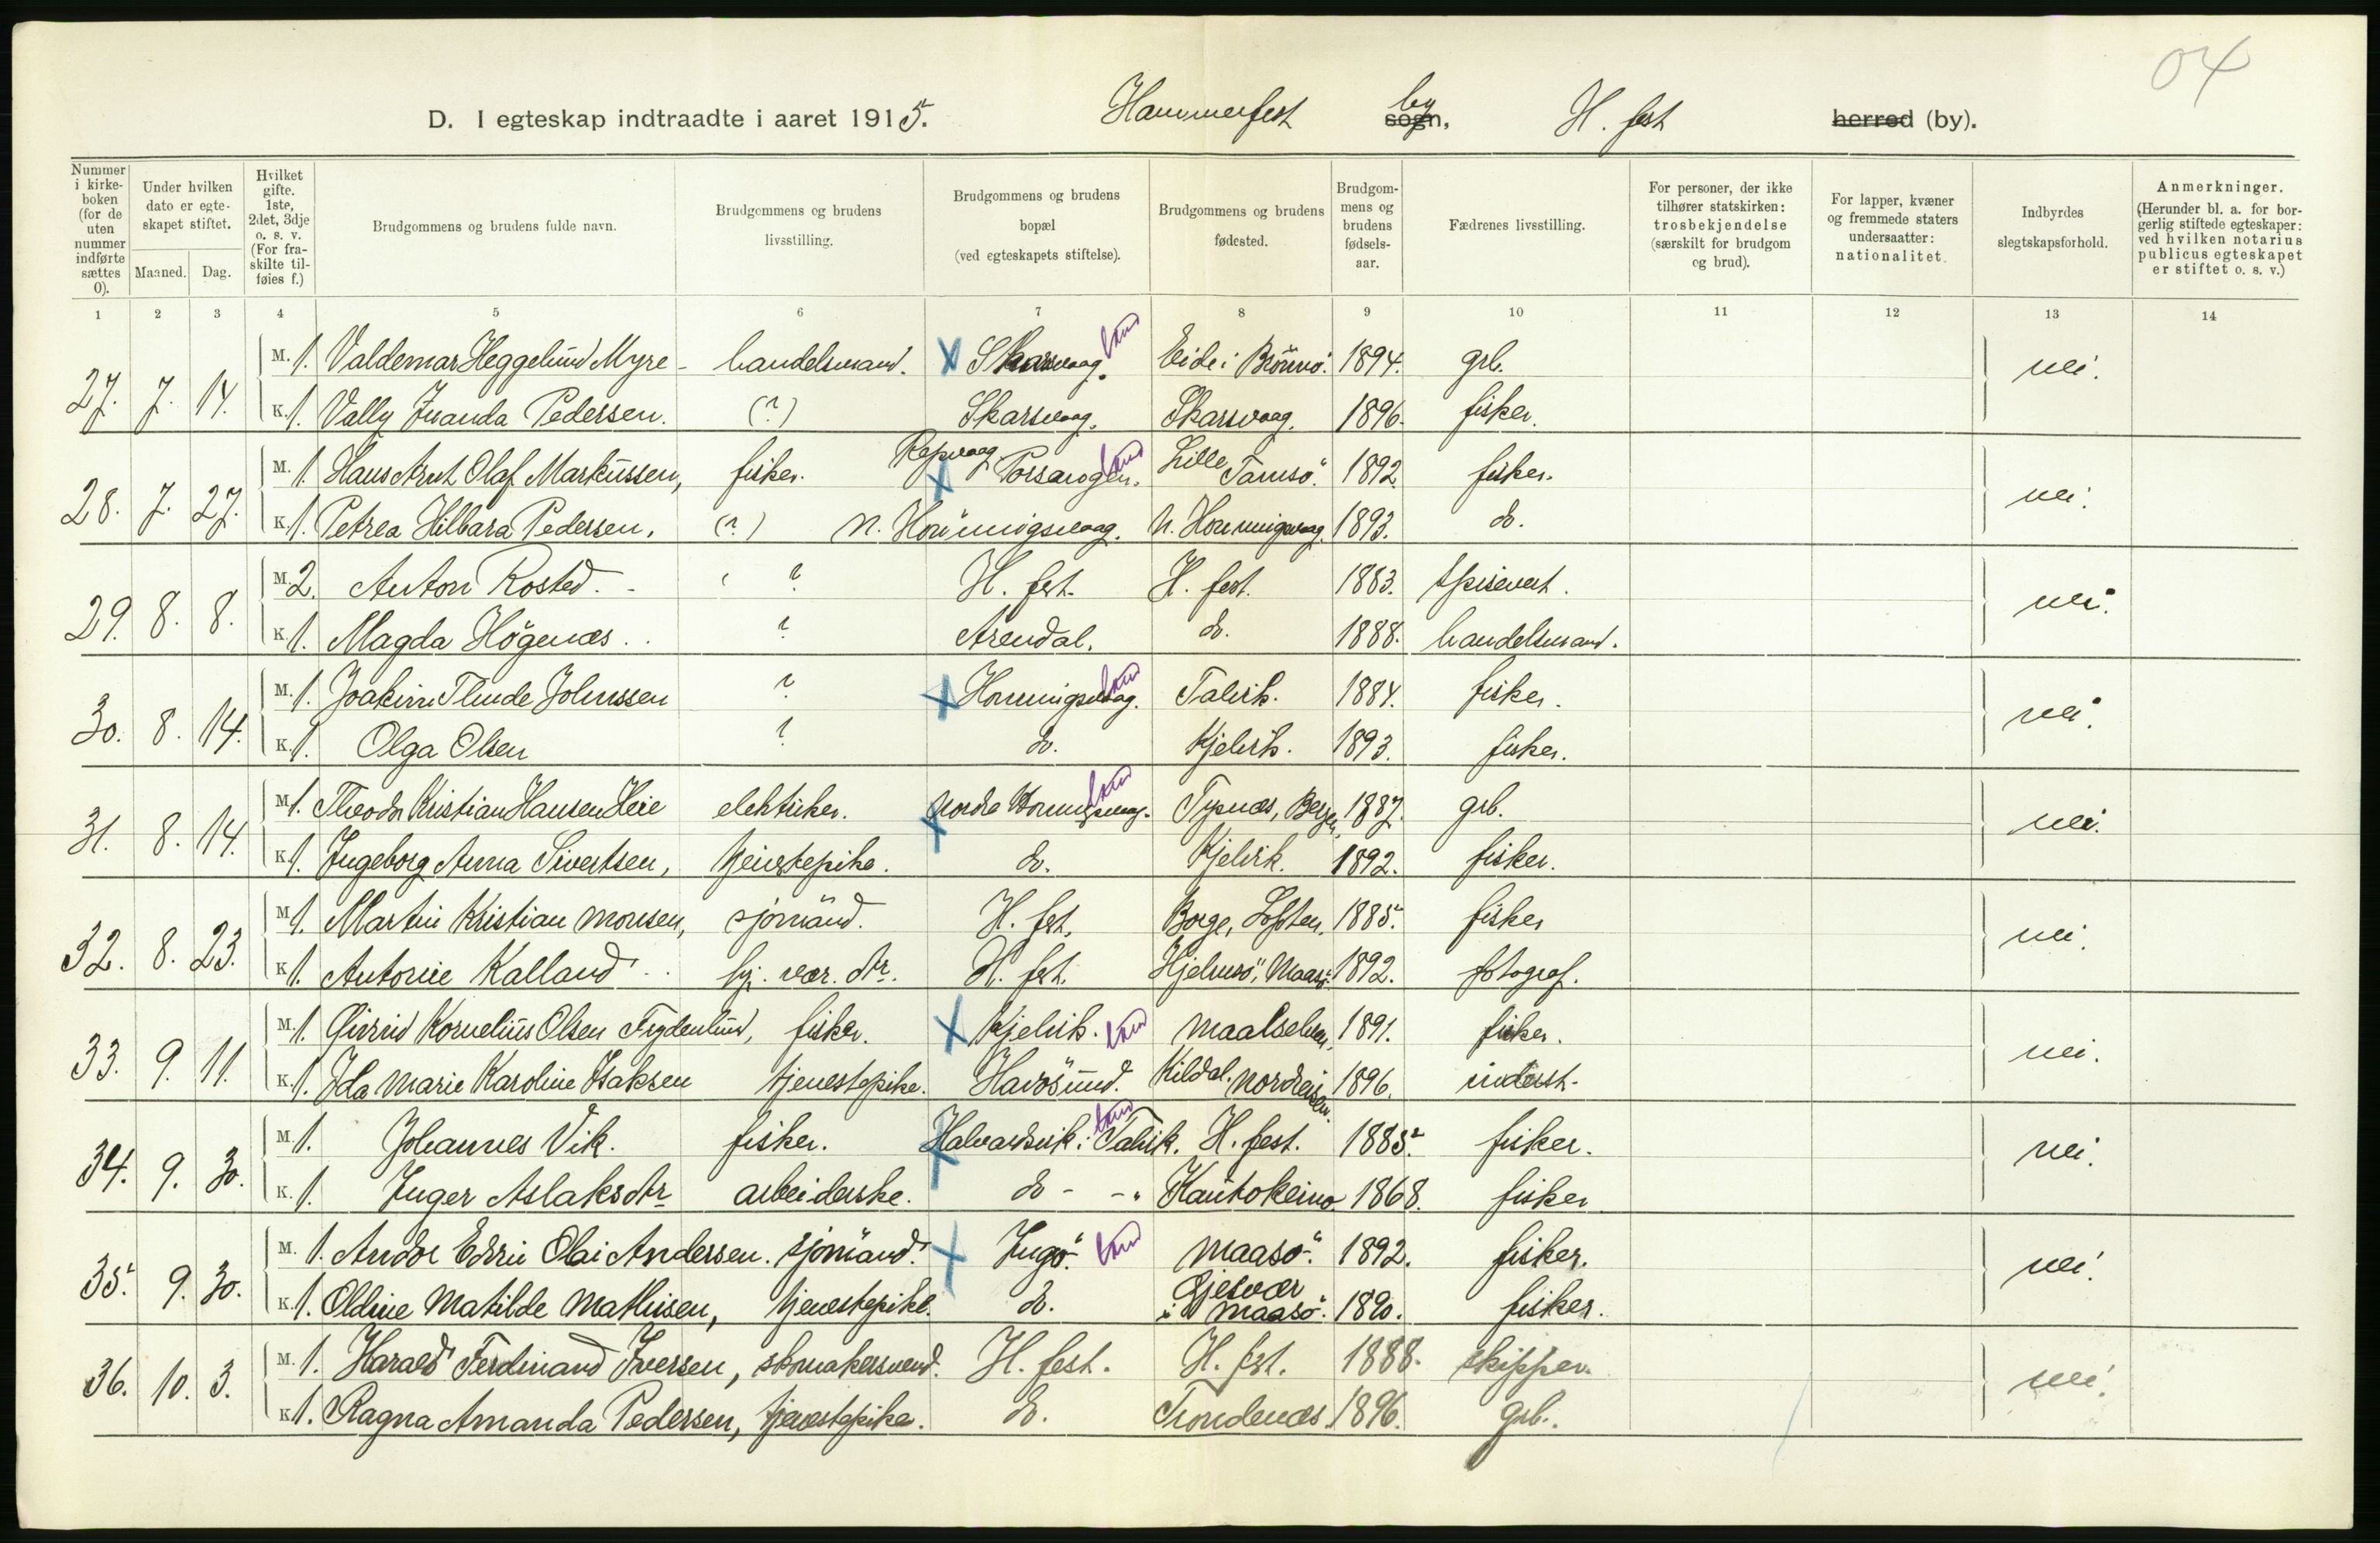 04
D. I egteskap indtraadte i aaret 1915. Hammerfest sogn, by H. fest herred (by).
Nummer i kirkeboken (for de uten nummer indførte sættes 0).
Under hvilken dato er egteskapet stiftet. Maaned. Dag.
Hvilket gifte. 1ste, 2det, 3dje o. s. v. (For fraskilte tilføies f.)
Brudgommens og brudens fulde navn.
Brudgommens og brudens livsstilling.
Brudgommens og brudens bopæl (ved egteskapets stiftelse).
Brudgommens og brudens fødested.
Brudgommens og brudens fødselsaar.
Fædrenes livsstilling.
For personer, der ikke tilhører statskirken: trosbekjendelse (særskilt for brudgom og brud).
For lapper, kvæner og fremmede staters undersaatter: nationalitet.
Indbyrdes slegtskapsforhold.
Anmerkninger. (Herunder bl. a. for borgerlig stiftede egteskaper: ved hvilken notarius publicus egteskapet er stiftet o. s. v.)
1 2 3 4 5 6 7 8 9 10 11 12 13 14
27. 7. 14. M. 1. Valdemar Heggelund Myre - handelsmand. X Skarsvaag. land Eide i Brönnö. 1894. grb. nei.
K. 1. Vally Ivanda Pedersen. (?) Skarsvaag. Skarsvaag. 1896. fisker.
28. 7. 27. M. 1. Hans Arnt Olaf Markussen, fisker. Repvaag X Porsangen. land Lille Tamsö. 1892. fisker. nei.
K. 1. Petrea Hilbara Pedersen. (?) N. Honningsvaag. N. Honningsvaag. 1893. do.
29. 8. 8. M. 2. Anton Rosted. ? H. fest. H. fest. 1883. spisevert. nei.
K. 1. Magda Högenæs. ? Arendal. do. 1888. handelsmand.
30. 8. 14. M. 1. Joakim Thude Johnssen ? X Honningsvaag. land Talvik. 1884. fisker. nei.
K. 1. Olga Olsen ? do. Kjelvik. 1893. fisker.
31. 8. 14. M. 1. Theodor Kristian Hansen Heie elektriker. X Nordre Honningsvaag. land Tysnæs, Bergen. 1887. grb. nei.
K. 1. Ingeborg Anna Sivertsen, tjenestepike. do. Kjelvik. 1892. fisker.
32. 8. 23. M. 1. Martin Kristian Monsen, sjömand. H. fest. Borge, Lofoten. 1885. fisker nei.
K. 1. Antonie Kalland hj. vær. dtr. H. fest. Hjelmsö, Maasö. 1892. fotograf.
33. 9. 11. M. 1. Kornelius Olsen Frydenlund, fisker. X Kjelvik. land Maalselven. 1891. fisker. nei.
K. 1. Ida Marie Karoline Isaksen tjenestepike. Havösund. Kildal. Nordreisen. 1896. inderst.
34. 9. 30. M. 1. Johannes Vik. fisker. X Halvardsvik i Talvik. land H. fest. 1885. fisker. nei.
K. 1. Inger Aslaksdtr arbeiderske. do - -" Kautokeino 1868. fisker
35. 9. 30. M. 1. Andor Edvin Olai Andersen. sjömand. X Ingö. land Maasö. 1892. fisker. nei.
K. 1. Oldine Matilde Mathisen, tjenestepike. do. Gjesvær i Maasö. 1890. fisker.
36. 10. 3. M. 1. Harald Ferdinand Iversen, skomakersvend. H. fest. H. fest. 1888. skipper. nei.
K. 1. Ragna Amanda Pedersen, tjenestepike. do. Trondenæs. 1896. grb.